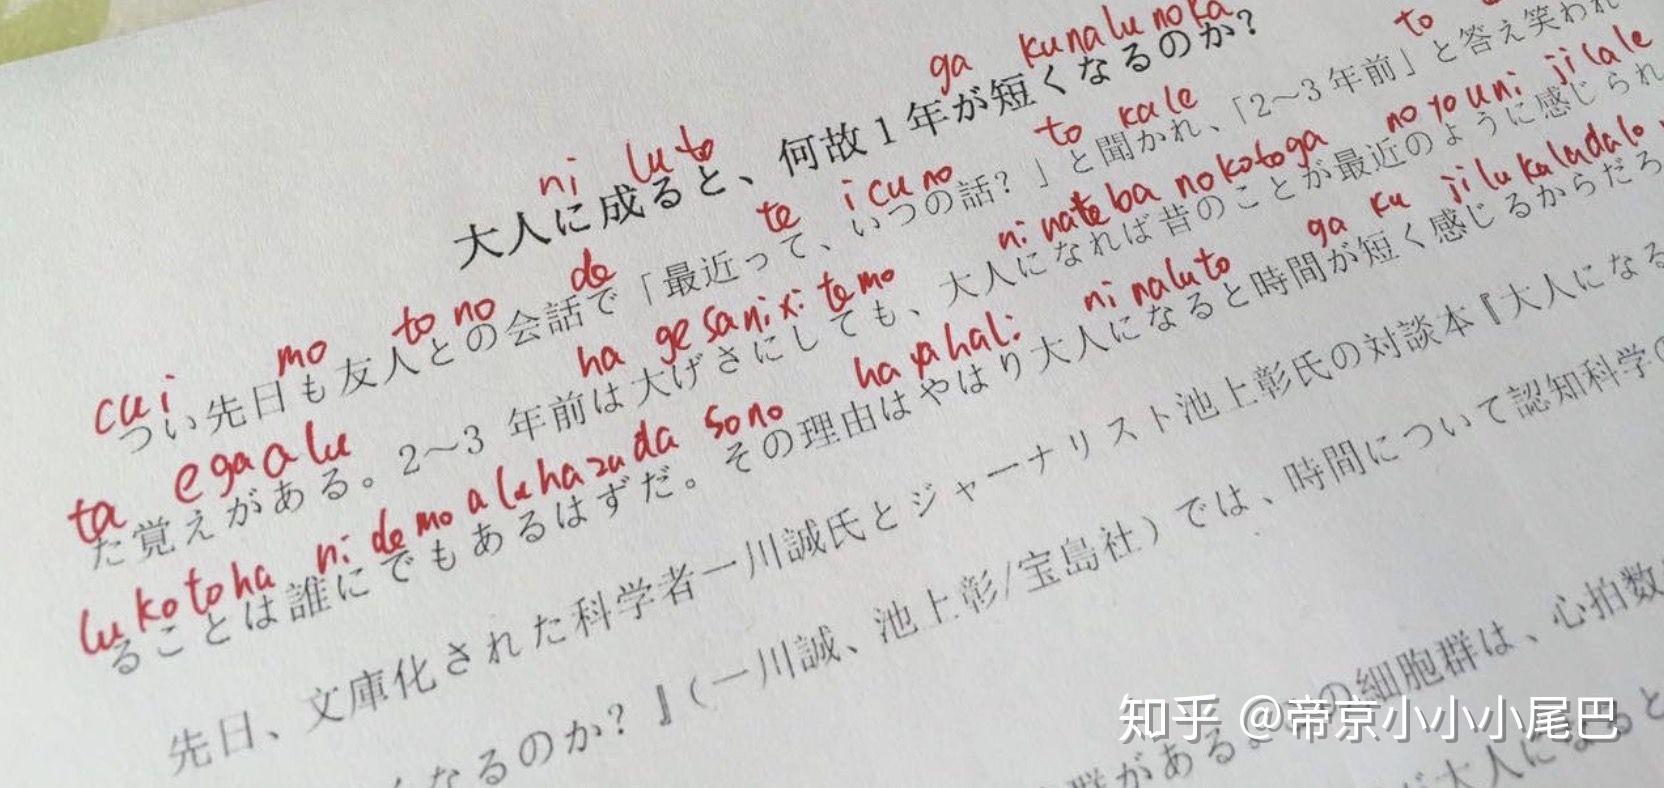 ga kunalunoka
ni luto
大人に成ると、何故1年が短くなるのか?
to
cui mo to no de te icuno to kale
つい先日も友人との会話で「最近って、いつの話?」と聞かれ、「2～3年前」と答え笑われ
ta egaalu ha gesanixi temo ninateba nokotoga noyouni jilale
た覚えがある。2～3 年前は大げさにしても、大人になれば昔のことが最近のように感じられ
lukotoha ni demoaluhazuda sono hayahali ninaluto ga ku jilukaladalo
ることは誰にでもあるはずだ。その理由はやはり大人になると時間が短く感じるからだろ
先日、文庫化された科学者一川誠氏とジャーナリスト池上彰氏の対談本『大人になる
くなるのか?』(一川誠、池上彰/宝島社)では、時間について認知科学の
の細胞群は、心拍数
群がある。
が大人になると
知乎 @帝京小小小尾巴